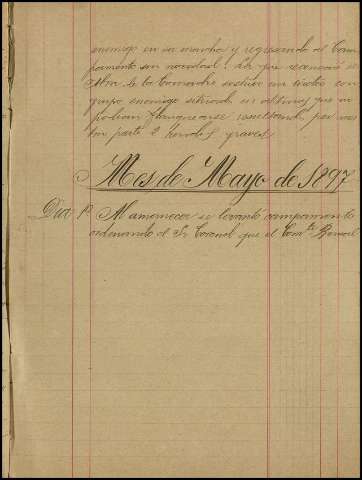 enemigo en su marcha y regresando al Cam
pamento sin novedad. La que reconoció
de la Comadre sostuvo un tiroteo con
grupo enemigo situado en alturas que no
podian flanquearse resultando por nues
tra parte 2 heridos graves.
Mes de Mayo de 1897
Dia 1º Al amanecer se levantó campamento
ordenando el Sr Coronel que el Comte